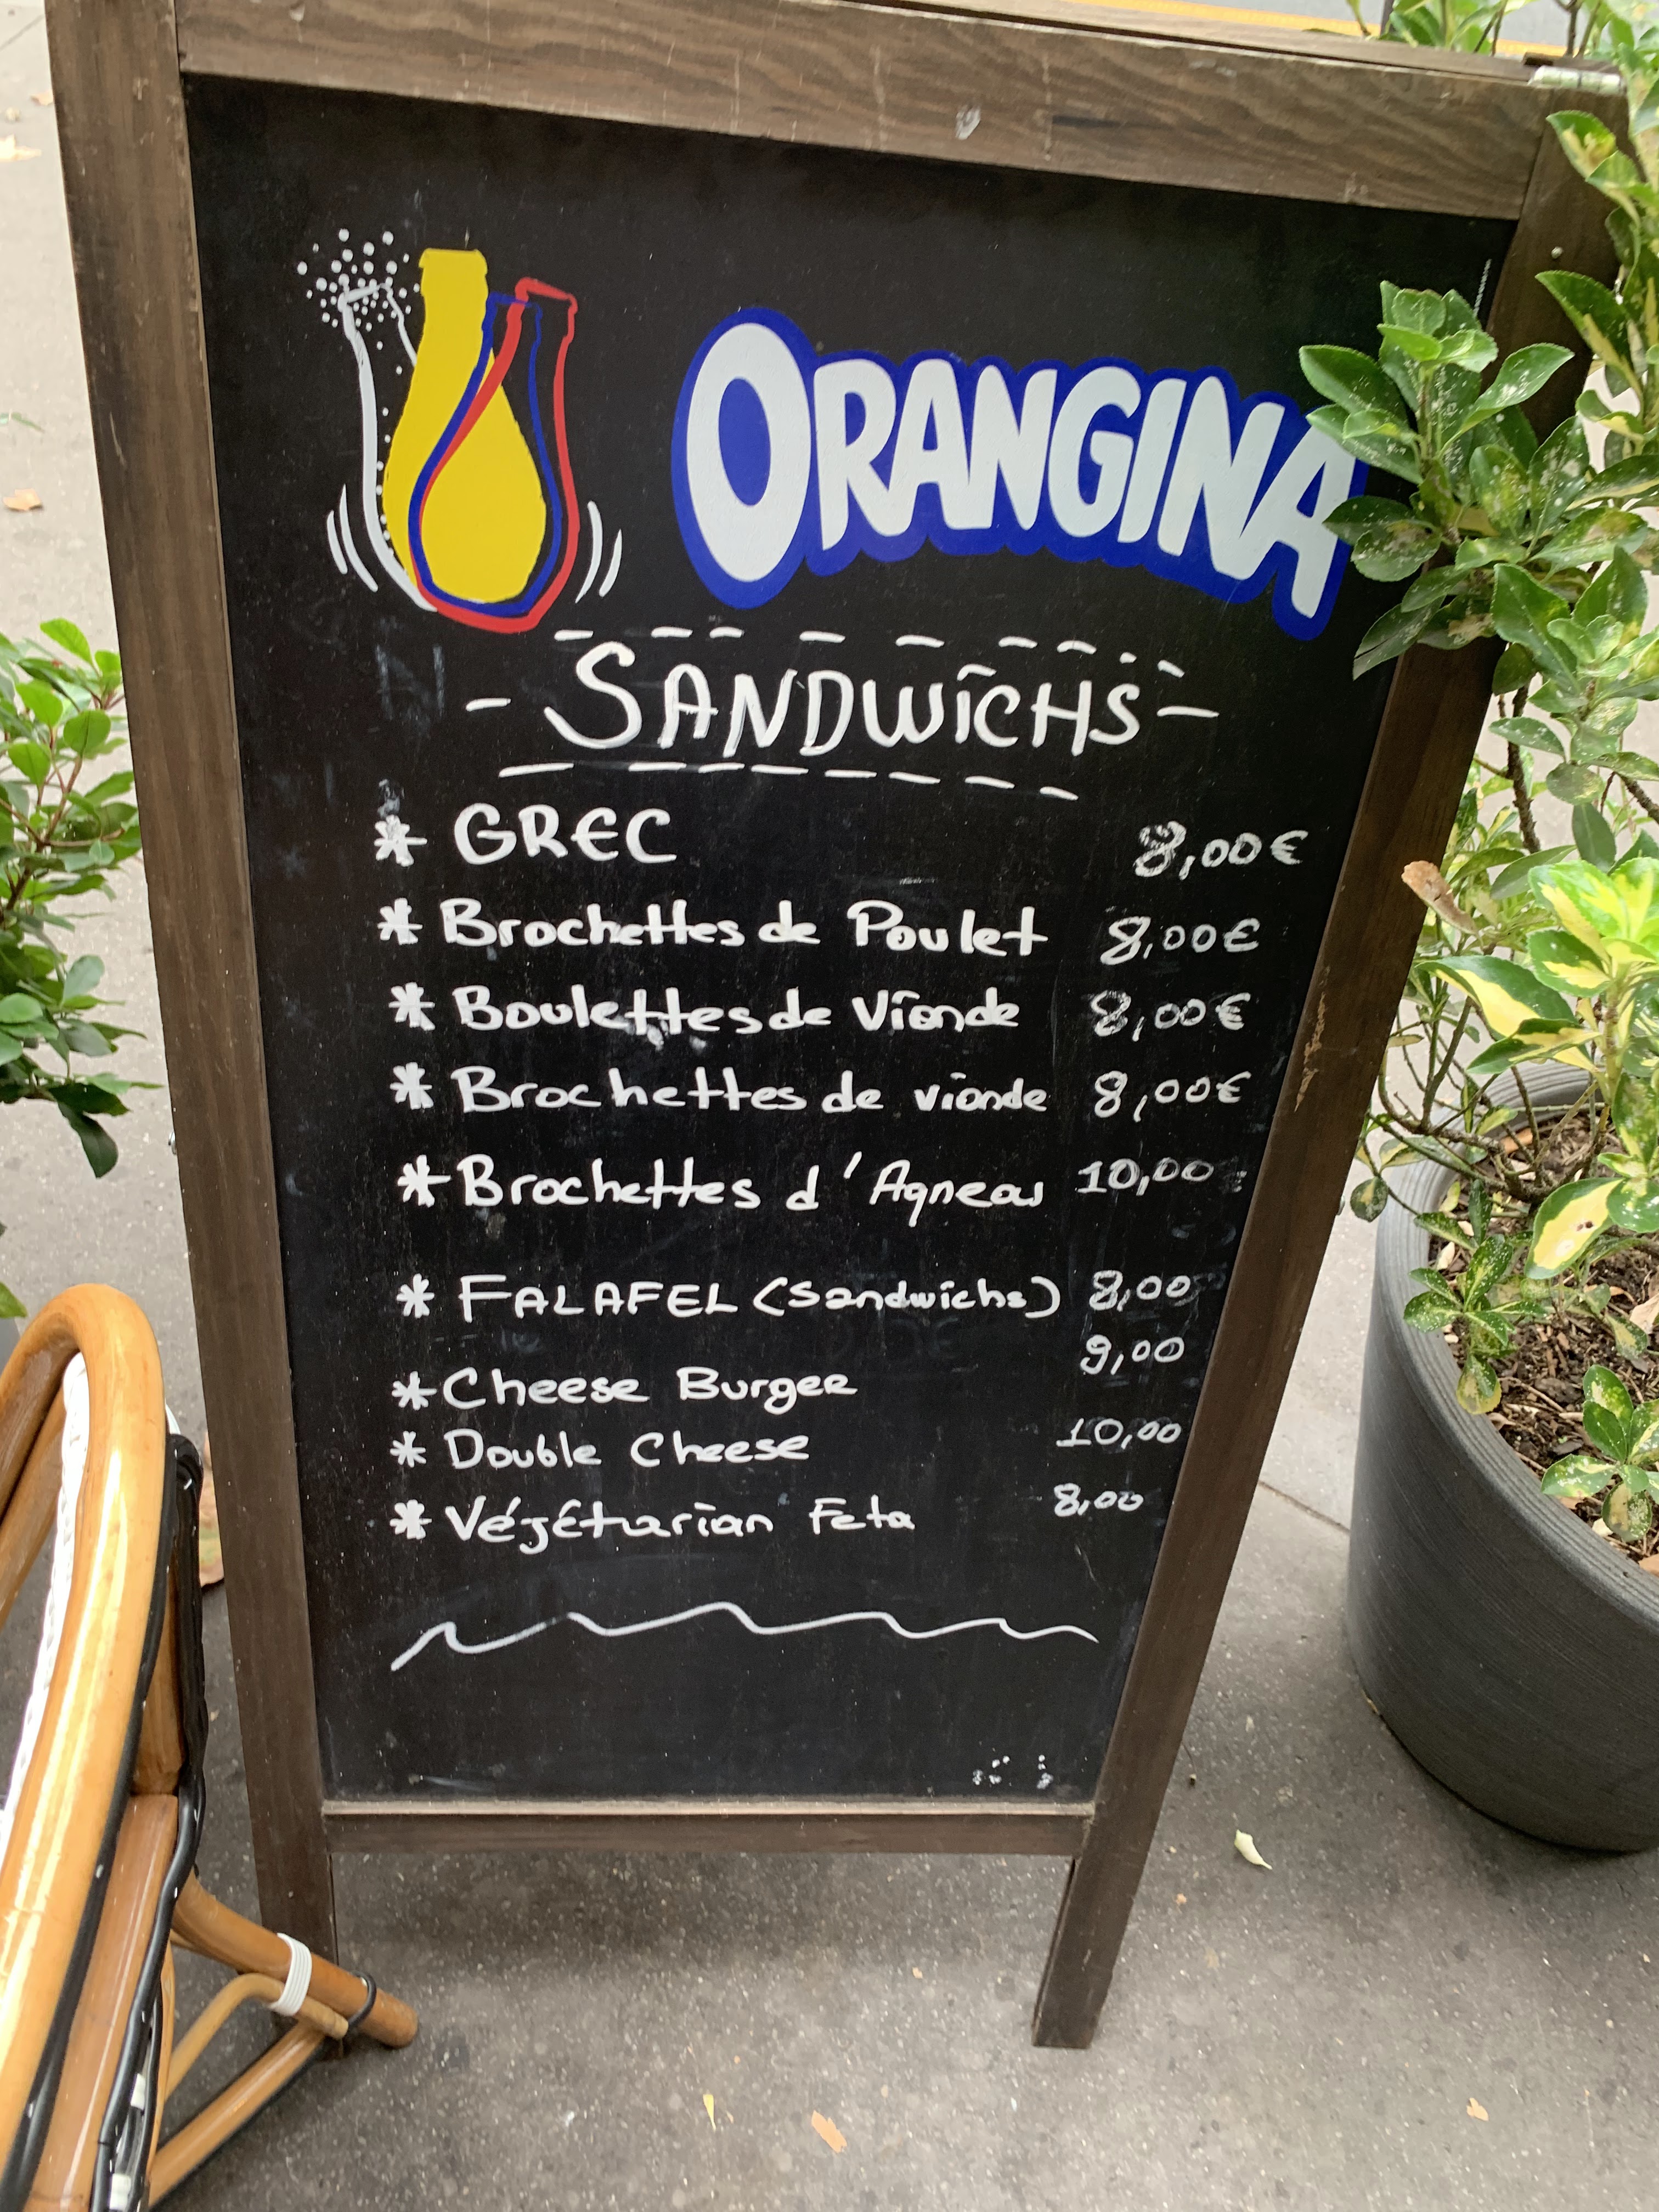 ORANGINA
- SANDWICHS -
* GREC 8,00€
* Brochettes de Poulet 8,00€
* Boulettes de Viande 8,00€
* Brochettes de viande 8,00€
* Brochettes d'Agneau 10,00
* FALAFEL (Sandwichs) 8,00
* Cheese Burger 9,00
* Double Cheese 10,00
* Végétarian Feta 8,00